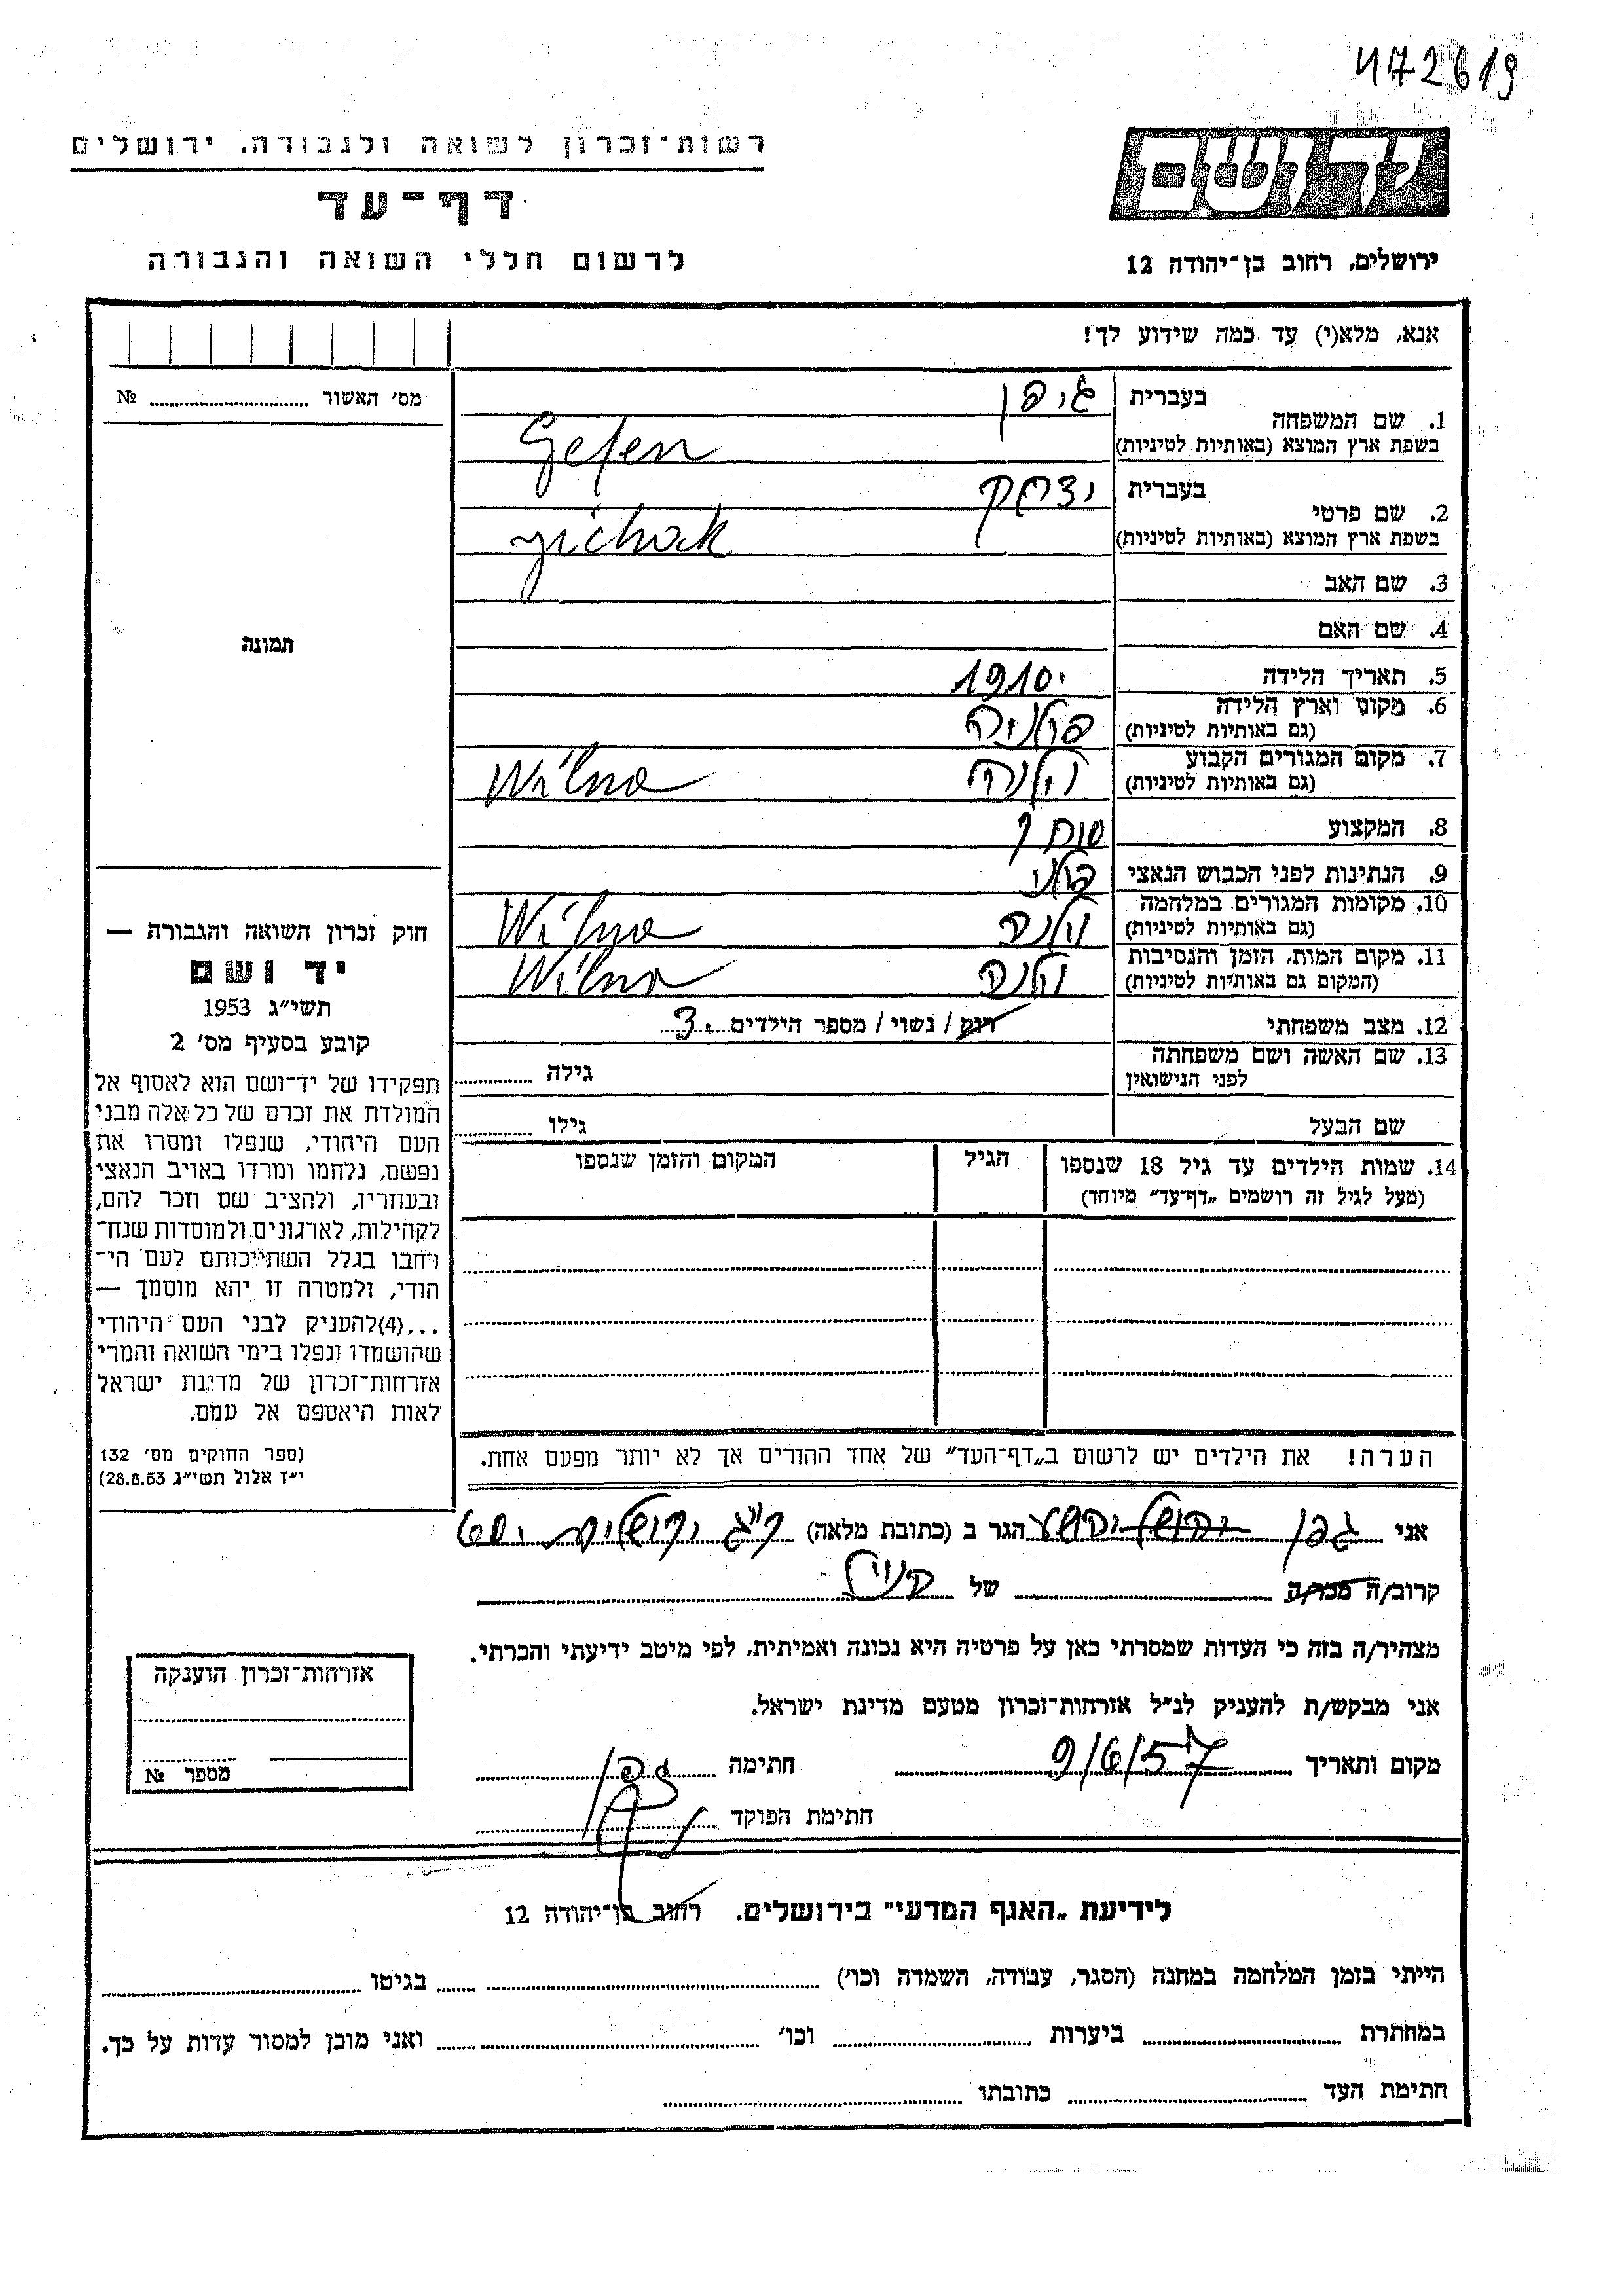 472619
רשות־זכרון לשואה ולגבורה, ירושלים
דף־עד
לרשום חללי השואה והגבורה
יד ושם
ירושלים, רחוב בן־יהודה 12
אנא, מלא(י) עד כמה שידוע לך!
מס׳ האשור № 
1. שם המשפחה
בעברית גיפן
בשפת ארץ המוצא (באותיות לטיניות) Gefen
2. שם פרטי
בעברית יצחק
בשפת ארץ המוצא (באותיות לטיניות) yichak
3. שם האב
4. שם האם
5. תאריך הלידה 1910
6. מקום וארץ הלידה פולניה
(גם באותיות לטיניות)
7. מקום המגורים הקבוע וילנה Wilna
(גם באותיות לטיניות)
8. המקצוע סוחר
9. הנתינות לפני הכבוש הנאצי פולני
10. מקומות המגורים במלחמה וילנה Wilna
(גם באותיות לטיניות)
11. מקום המות, הזמן והנסיבות וילנה Wilna
(המקום גם באותיות לטיניות)
12. מצב משפחתי רווק / נשוי / מספר הילדים 3
13. שם האשה ושם משפחתה גילה
לפני הנישואין
שם הבעל גילו
14. שמות הילדים עד גיל 18 שנספו הגיל המקום והזמן שנספו
(מעל לגיל זה רושמים „דף־עד״ מיוחד)
הערה! את הילדים יש לרשום ב„דף־העד״ של אחד ההורים אך לא יותר מפעם אחת.
תמונה
חוק זכרון השואה והגבורה —
יד ושם
תשי״ג 1953
קובע בסעיף מס׳ 2
תפקידו של יד־ושם הוא לאסוף אל
המולדת את זכרם של כל אלה מבני
העם היהודי, שנפלו ומסרו את
נפשם, נלחמו ומרדו באויב הנאצי
ובעוזריו, ולהציב שם וזכר להם,
לקהילות, לארגונים ולמוסדות שנח־
רבו בגלל השתייכותם לעם הי־
הודי, ולמטרה זו יהא מוסמך —
...(4)להעניק לבני העם היהודי
שהושמדו ונפלו בימי השואה והמרי
אזרחות־זכרון של מדינת ישראל
לאות היאספם אל עמם.
(ספר החוקים מס׳ 132
י״ז אלול תשי״ג 28.8.53)
אני גפן הגר ב (כתובת מלאה)
קרוב/ה מכר/ה של
מצהיר/ה בזה כי העדות שמסרתי כאן על פרטיה היא נכונה ואמיתית, לפי מיטב ידיעתי והכרתי.
אני מבקש/ת להעניק לנ״ל אזרחות־זכרון מטעם מדינת ישראל.
מקום ותאריך 9/6/57 חתימה גפן
חתימת הפוקד
אזרחות־זכרון הוענקה
מספר №
לידיעת „האגף המדעי״ בירושלים. רחוב בן־יהודה 12
הייתי בזמן המלחמה במחנה (הסגר, עבודה, השמדה וכו׳) בגיטו
במחתרת ביערות וכו׳ ואני מוכן למסור עדות על כך.
חתימת העד כתובתו